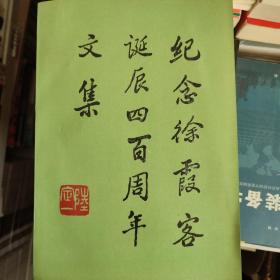 纪念徐霞客
诞辰四百周年
文集
陆定一
装备